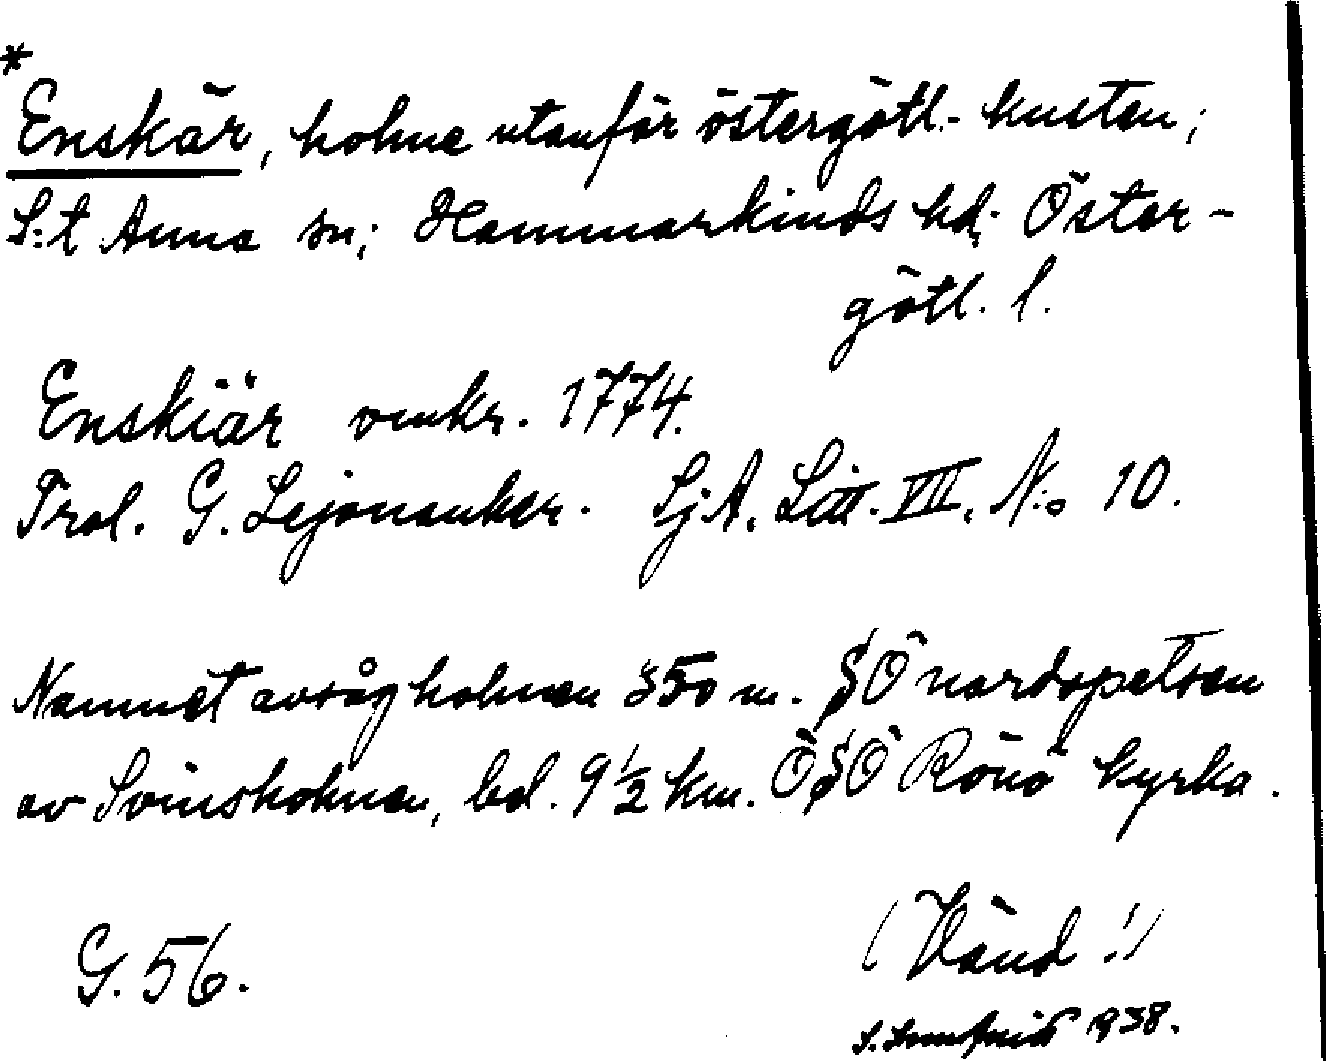 *
Enskär, holme utanför östergötl.- kusten;
S:t Anna sn; Hammarkinds hd; Öster-
götl. l.
Enskiär omkr. 1774.
Prol. G. Lejonanker. SjA. Litt. VII. N:o 10.
Namnet avsåg holmen 350 m. SÖ nordspetsen
av Svinsholmen, bel. 9½ km. ÖSÖ Rönö kyrka.
G. 56.
(Vänd!)
S. 1938.